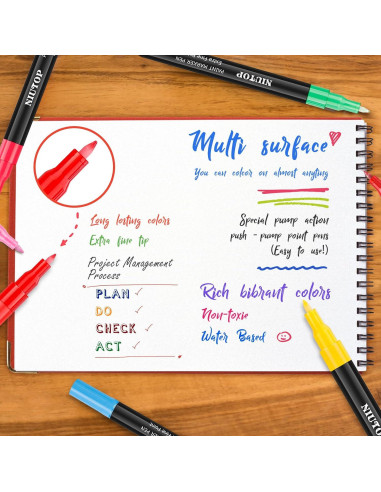 NIUTOP
PAINT MARKER PEN
Extra Fine Point
NIUTOP
Multi surface
You can color on almost anyting
Long lasting colors
Extra fine tip
Special pump action
push - pump point pens
(Easy to use!)
Project Management
Process
PLAN
DO
CHECK
ACT
Rich bibrant colors
Non-toxic
Water Based
NIUTOP